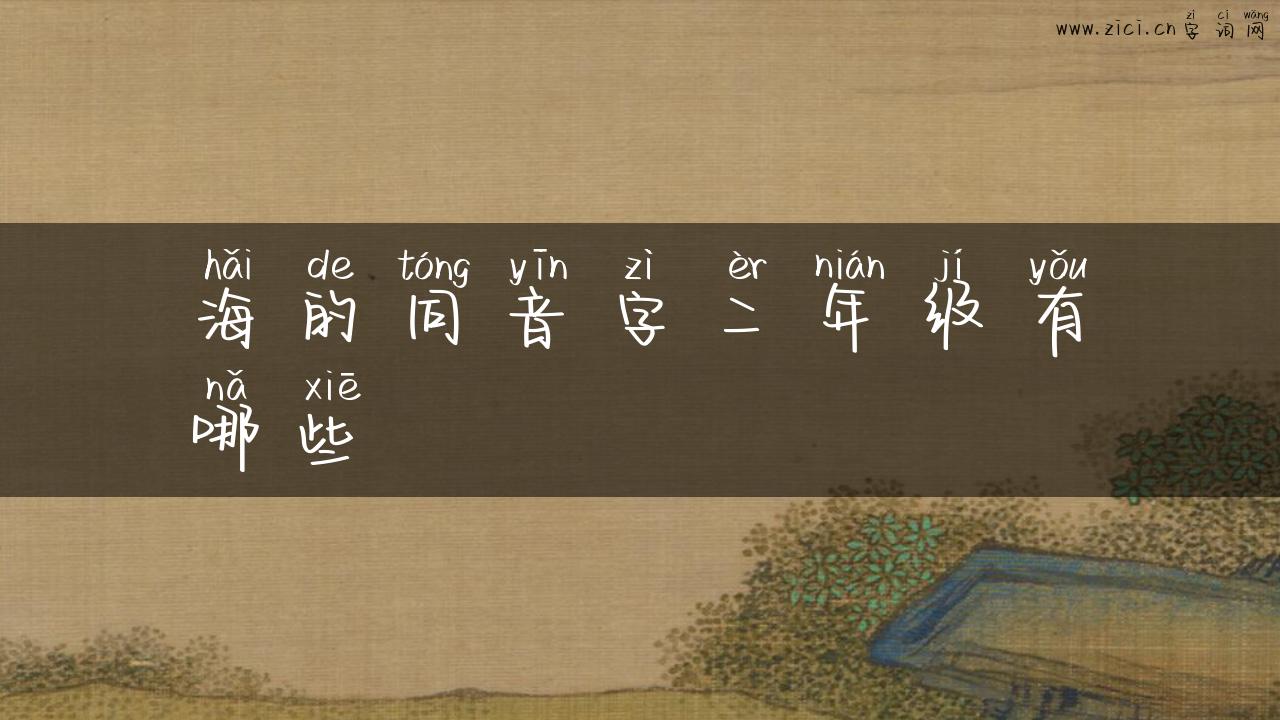 zì cí wǎng
www.zici.cn 字词网
hǎi de tóng yīn zì èr nián jí yǒu
海的同音字二年级有
nǎ xiē
哪些